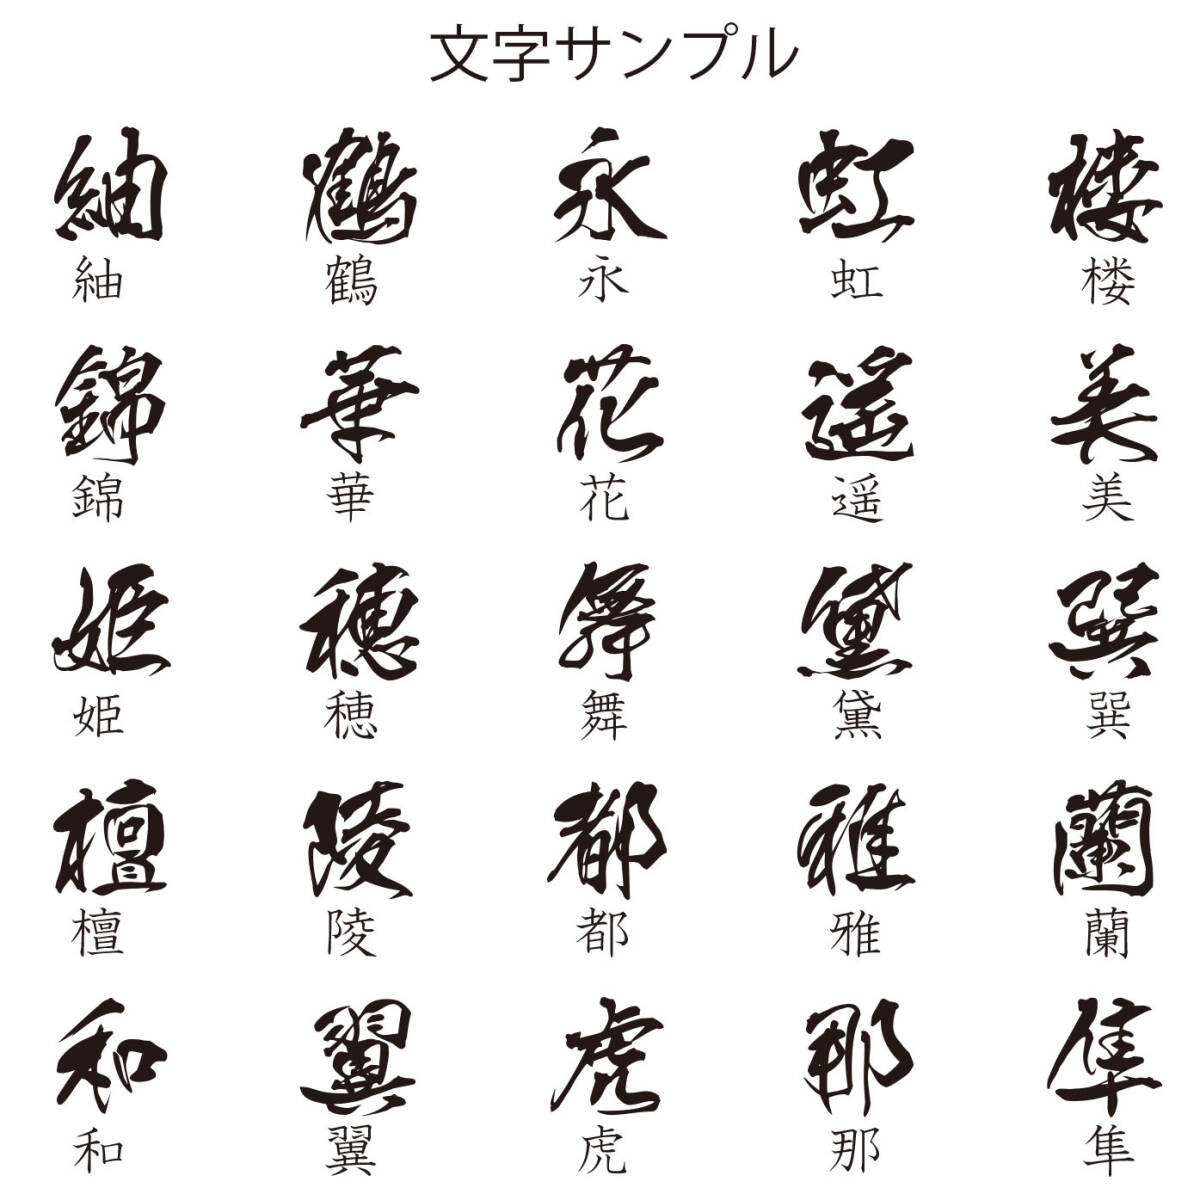 文字サンプル
紬 鶴 永 虹 楼
紬 鶴 永 虹 楼
錦 華 花 遥 美
錦 華 花 遥 美
姫 穂 舞 黛 巽
姫 穂 舞 黛 巽
檀 陵 都 雅 蘭
檀 陵 都 雅 蘭
和 翼 虎 那 隼
和 翼 虎 那 隼